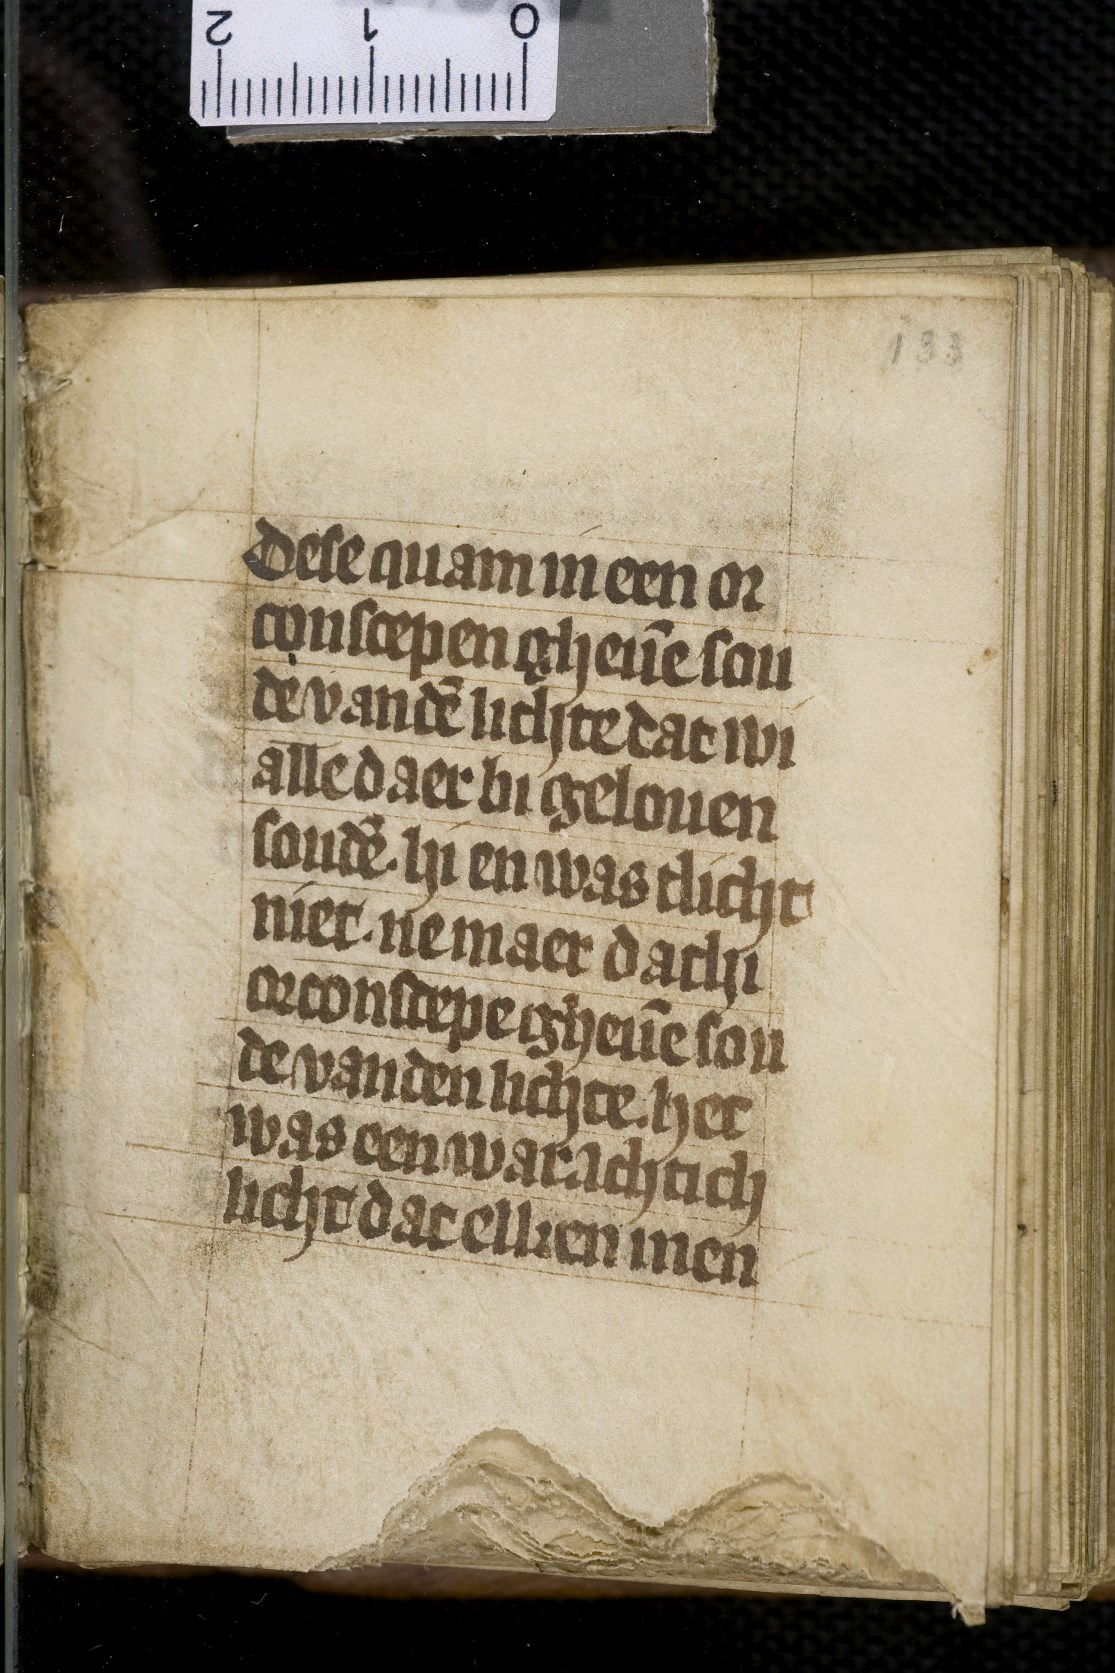 2 1 0
133
Dese quam in een or
conscepen gheuēe sou
de vandē lichte dat wi
alle daer bi gelouen
soudē. hi en was tlicht
niet. ne maer dat hi
orconscepe gheuēe sou
de vanden lichte. het
was een warachtich
licht dat elken men